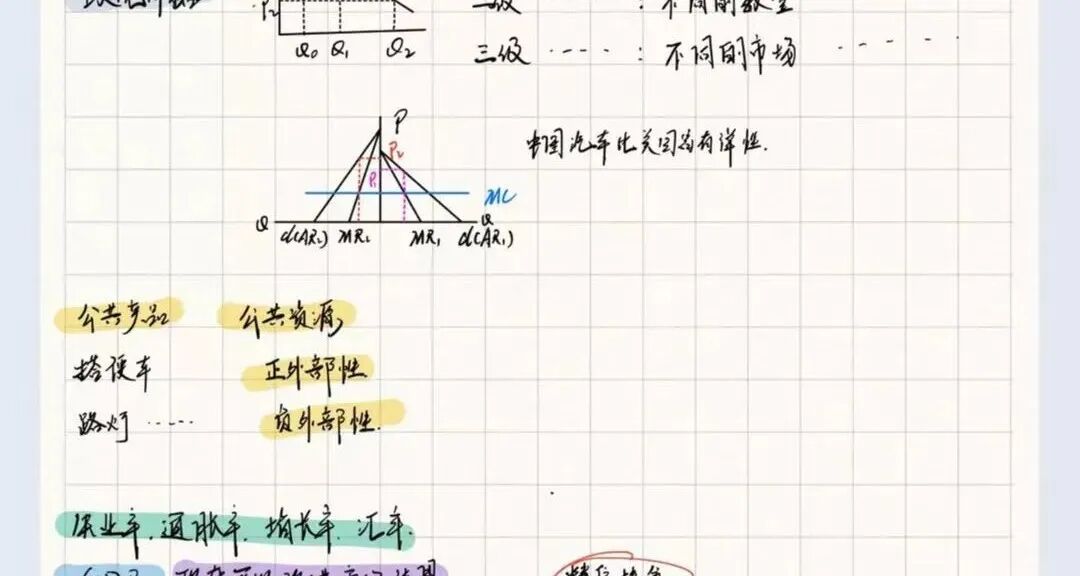 P₂
Q₀ Q₁ Q₂
二级 : 不同的数量
三级 ····· : 不同的市场 ·····
P
P₂
P₁
MC
Q Q
d(AR₂) MR₂ MR₁ d(AR₁)
中国汽车比美国富有弹性.
公共产品 公共资源
搭便车 正外部性
路灯 ····· 负外部性.
失业率、通胀率、增长率、汇率.